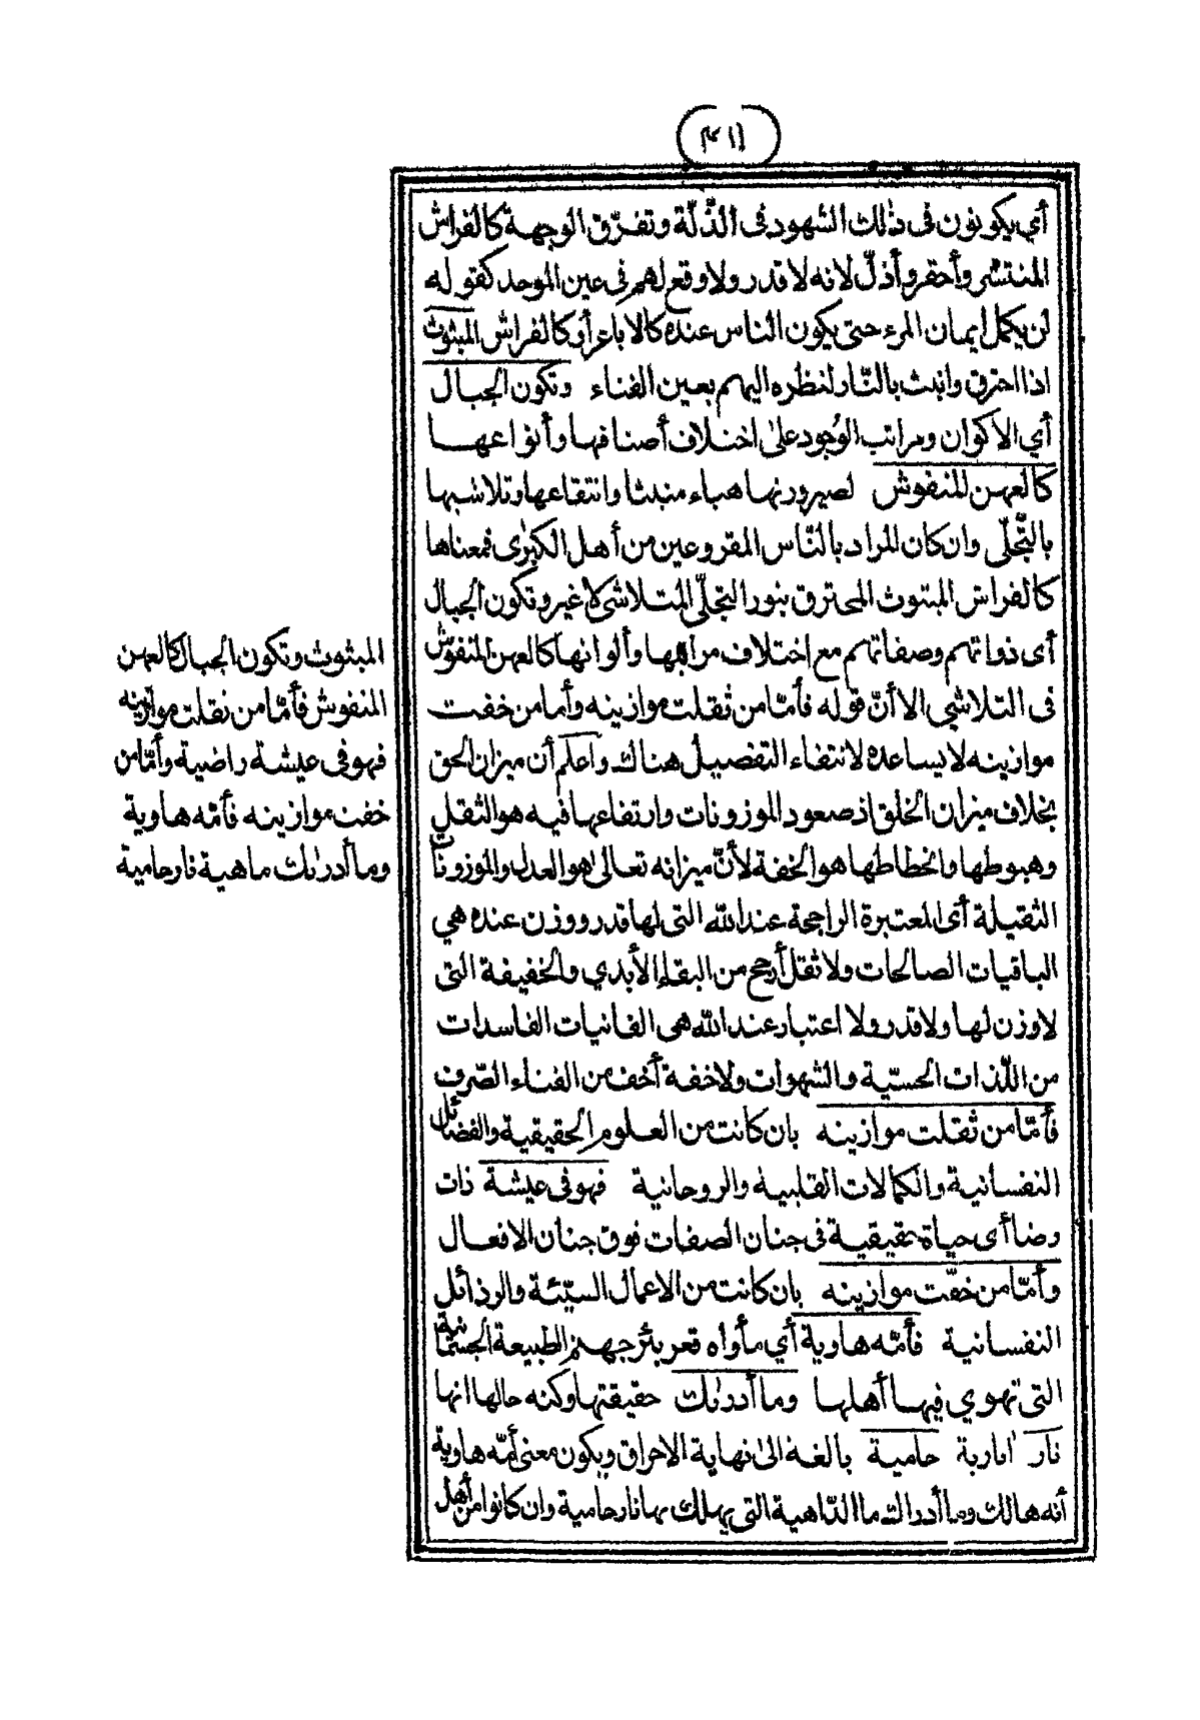 ٤١١
أي يكونون فى ذٰلك الشهود فى الذّلّة وتفرّق الوجهة كالفراش
المنتشر وأحقر وأذلّ لانه لا قدر ولا وقع لهم فى عين الموحد كقوله
لن يكمل ايمان المرء حتى يكون الناس عنده كالاباعر أو كالفراش المبثوث
اذا احترق وانبث بالنّار لنظره اليهم بعين الفناء وتكون الجبال
أي الاكوان ومراتب الوُجود علىٰ اختلاف أصنافها وأنواعها
كالعهن المنفوش لصيرورتها هباء منبثا وانتقاعها وتلاشيها
بالتّجلّى وان كان المراد بالنّاس المقروعين من أهل الكبرٰى فمعناها
كالفراش المبثوث المحترق بنور التجلّى المتلاشى لا غير وتكون الجبال
أى ذواتهم وصفاتهم مع اختلاف مراتبها وألوانها كالعهن المنفوش
فى التلاشي الا أنّ قوله فأمّا من ثقلت موازينه وأما من خفت
موازينه لا يساعده لانتفاء التفصيل هناك واعلم أن ميزان الحق
بخلاف ميزان الخلق اذ صعود الموزونات وارتفاعها فيه هو الثقل
وهبوطها وانحطاطها هو الخفة لأنّ ميزانه تعالىٰ هو العدل والموزونات
الثقيلة أى المعتبرة الراجحة عند الله التى لها قدر ووزن عنده هي
الباقيات الصالحات ولا ثقل أرجح من البقاء الأبدي والخفيفة التى
لا وزن لها ولا قدر ولا اعتبار عند الله هى الفانيات الفاسدات
من اللّذات الحسّية والشهوات ولا خفة أخف من الفناء الصّرف
فأمّا من ثقلت موازينه بان كانت من العلوم الحقيقية والفضائل
النفسانية والكمالات القلبية والروحانية فهو فى عيشة ذات
رضا أى حياة حقيقية فى جنان الصفات فوق جنان الافعال
وأمّا من خفّت موازينه بان كانت من الاعمال السيّئة والرذائل
النفسانية فأمّه هاوية أي مأواه قعر بئر جهنم الطبيعة الجسمانية
التى تهوي فيها أهلها وما أدرٰىك حقيقتها وكنه حالها انها
نار اٰنارية حامية بالغة الىٰ نهاية الاحراق ويكون معنى أمّه هاوية
أنه هالك وما أدراك ما الدّاهية التى يهلك بها نار حامية وان كانوا من أهل
المبثوث وتكون الجبال كالعهن
المنفوش فأمّا من ثقلت موازينه
فهو فى عيشة راضية وأمّا من
خفت موازينه فأمّه هاوية
وما أدرٰىك ماهية نار حامية